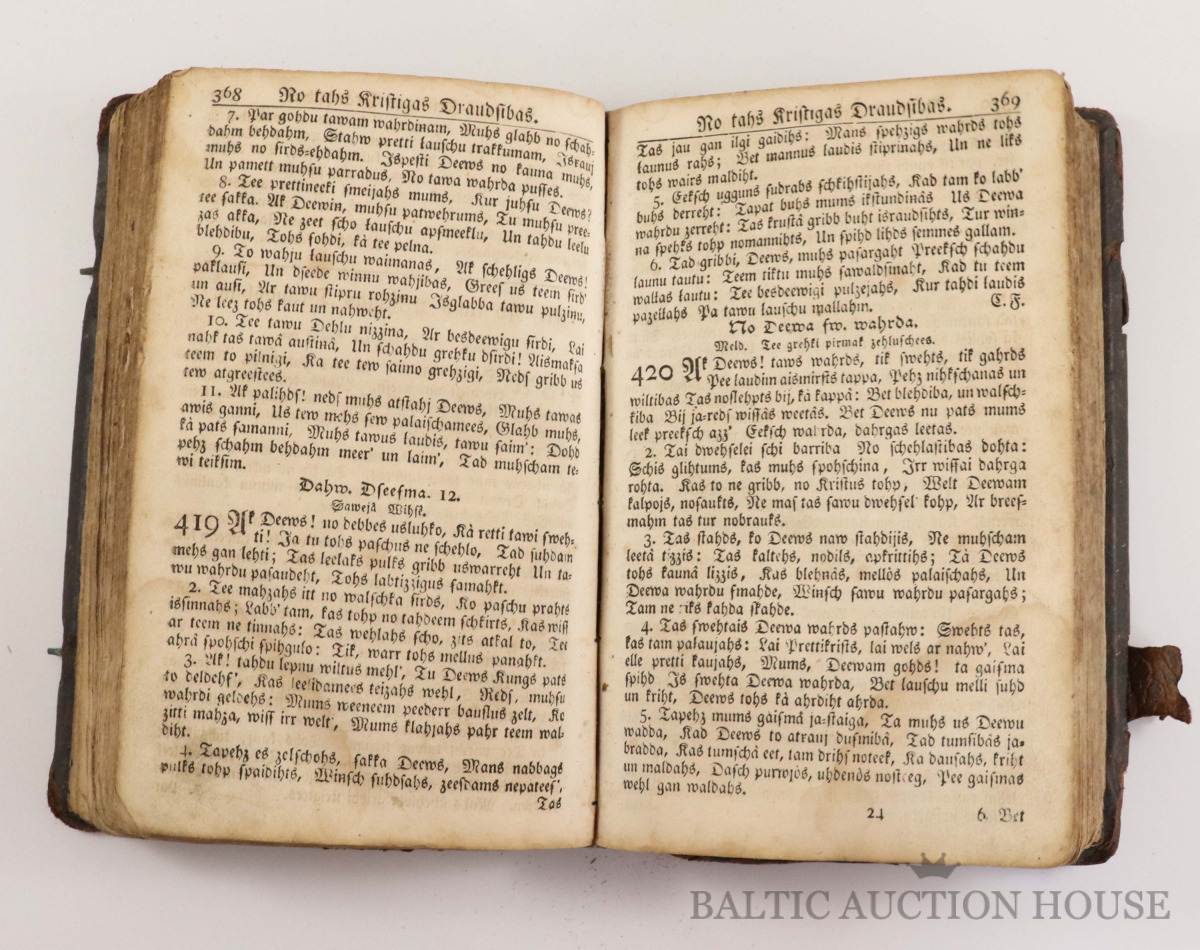 368 No tahs Kristigas Draudsibas.
7. Par gohdu tawam wahrdinam, Muhs glahb no schah-
dahm behdahm, Stahw pretti lauschu trakkumam, Israuj
muhs no sirds-ehdahm. Ispesti Deews no kauna muhs,
Un pamett muhsu parradus, No tawa wahrda pusses.
8. Tee prettineeki smeijahs mums, Kur juhsu Deews?
tee sakka. Ak Deewin, muhsu patwehrums, Tu muhsu pree-
zas akka, Ne zeet scho lauschu apsmeeklu, Un tahdu leelu
blehdibu, Tohs sohdi, kâ tee pelna.
9. To wahju lauschu waimanas, Ak schehligs Deews!
paklausi, Un dseede winnu wahjibas, Grees us teem sird'
un ausi, Ar tawu stipru rohzinu Isglabba tawu pulzinu,
Ne leez tohs kaut un nahweht.
10. Tee tawu Dehlu nizzina, Ar besdeewigu sirdi, Lai
nahk tas tawâ austinâ, Un schahdu grehku dsirdi! Aismaksa
teem to pilnigi, Ka tee tew saimo grehzigi, Neds gribb us
tew atgreestees.
11. Ak palihds! neds muhs atstahj Deews, Muhs tawas
awis ganni, Us tew mehs sew palaischamees, Glahb muhs,
kâ pats samanni, Muhs tawus laudis, tawu saim': Dohd
pehz schahm behdahm meer' un laim', Tad muhscham te-
wi teiksim.
Dahw. Dseesma. 12.
Sawejâ Wihsê.
419 Ak Deews! no debbes usluhko, Kâ retti tawi sweh-
ti! Ja tu tohs paschus ne schehlo, Tad suhdam
mehs gan lehti; Tas leelaks pulks gribb uswarreht Un ta-
wu wahrdu pasaudeht, Tohs labtizzigus samahkt.
2. Tee mahzahs itt no walschka sirds, Ko paschu prahts
issinnahs; Labb' tam, kas tohp no tahdeem schkirts, Kas wiss
ar teem ne tinnahs: Tas wehlahs scho, zits atkal to, Tee
ahrâ spohschi spihgulo: Tik, warr tohs mellus panahkt.
3. Ak! tahdu lepnu wiltus mehl', Tu Deews Kungs pats
to deldehs', Kas leelidamees teizahs wehl, Reds, muhsu
wahrdi geldehs: Mums weeneem peederr bauslus zelt, Ko
zitti mahza, wiss irr welt', Mums klahjahs pahr teem wal-
diht.
4. Tapehz es zelschohs, sakka Deews, Mans nabbags
pulks tohp spaidihts, Winsch suhdsahs, zeesdams nepatees',
Tas
No tahs Kristigas Draudsibas. 369
Tas jau gan ilgi gaidihs: Mans spehzigs wahrds tohs
launus rahs; Bet mannus laudis stiprinahs, Un ne liks
tohs wairs maldiht.
5. Eeksch ugguns sudrabs schkihstijahs, Kad tam ko labb'
buhs derreht: Tapat buhs mums ikstundinâs Us Deewa
wahrdu zerreht: Tas krustâ gribb buht israudsihts, Tur win-
na spehks tohp nomannihts, Un spihd lihds semmes gallam.
6. Tad gribbi, Deews, muhs pasargaht Preeksch schahdu
launu tautu: Teem tiktu muhs sawaldsinaht, Kad tu teem
wallas lautu: Tee besdeewigi pulzejahs, Kur tahdi laudis
pazeltahs Pa tawu lauschu mallahm. C. F.
No Deewa sw. wahrda.
Meld. Tee grehki pirmak zehluschees.
420 Ak Deews! taws wahrds, tik swehts, tik gahrds
Pee laudim aismirsts tappa, Pehz nihkschanas un
wiltibas Tas noslehpts bij, kâ kappâ: Bet blehdiba, un walsch-
kiba Bij ja-reds wissâs weetâs. Bet Deews nu pats mums
leek preeksch azz' Eeksch wahrda, dahrgas leetas.
2. Tai dwehselei schi barriba No schehlastibas dohta:
Schis glihtums, kas muhs spohschina, Irr wissai dahrga
rohta. Kas to ne gribb, no Kristus tohp, Welt Deewam
kalpojs, nosaukts, Ne mas tas sawu dwehsel' kohp, Ar brees-
mahm tas tur nobrauks.
3. Tas stahds, ko Deews naw stahdijis, Ne muhscham
leetâ tizzis: Tas kaltehs, nodils, apkrittihs; Tâ Deews
tohs kaunâ lizzis, Kas blehnâs, mellôs palaischahs, Un
Deewa wahrdu smahde, Winsch sawu wahrdu pasargahs;
Tam ne tiks kahda skahde.
4. Tas swehtais Deewa wahrds pastahw: Swehts tas,
kas tam palaujahs: Lai Prettikrists, lai wels ar nahw', Lai
elle pretti kaujahs, Mums, Deewam gohds! ta gaisma
spihd Is swehta Deewa wahrda, Bet lauschu melli suhd
un kriht, Deews tohs kâ ahrdiht ahrda.
5. Tapehz mums gaismâ ja-staiga, Ta muhs us Deewu
wadda, Kad Deews to atrauj dusmibâ, Tad tumsibâs ja-
bradda, Kas tumschâ eet, tam drihs noteek, Ka dausahs, kriht
un maldahs, Dasch purwjôs, uhdenôs nosteeg, Pee gaismas
wehl gan waldahs.
24 6. Bet
BALTIC AUCTION HOUSE